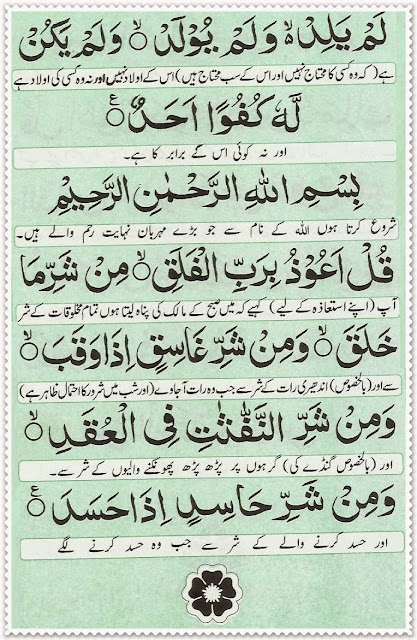 لَمْ يَلِدْ ۙ وَلَمْ يُوْلَدْ ۙ وَلَمْ يَكُنْ
ہے (کہ وہ کسی کا محتاج نہیں اور اس کے سب محتاج ہیں) اس کے اولاد نہیں اور نہ وہ کسی کی اولاد ہے
لَّهٗ كُفُوًا اَحَدٌ ۧ
اور نہ کوئی اس کے برابر کا ہے۔
بِسْمِ اللهِ الرَّحْمٰنِ الرَّحِيْمِ
شروع کرتا ہوں اللہ کے نام سے جو بڑے مہربان نہایت رحم والے ہیں۔
قُلْ اَعُوْذُ بِرَبِّ الْفَلَقِ ۙ مِنْ شَرِّ مَا
آپ (اپنے استعاذہ کے لیے) کہیے کہ میں صبح کے مالک کی پناہ لیتا ہوں تمام مخلوقات کے شر
خَلَقَ ۙ وَمِنْ شَرِّ غَاسِقٍ اِذَا وَقَبَ ۙ
سے اور (بالخصوص) اندھیری رات کے شر سے جب وہ رات آجاوے (اور شب میں شرور کا احتمال ظاہر ہے)
وَمِنْ شَرِّ النَّفّٰثٰتِ فِى الْعُقَدِ ۙ
اور (بالخصوص گنڈے کی) گرہوں پر پڑھ پڑھ پھونکنے والیوں کے شر سے۔
وَمِنْ شَرِّ حَاسِدٍ اِذَا حَسَدَ ۧ
اور حسد کرنے والے کے شر سے جب وہ حسد کرنے لگے